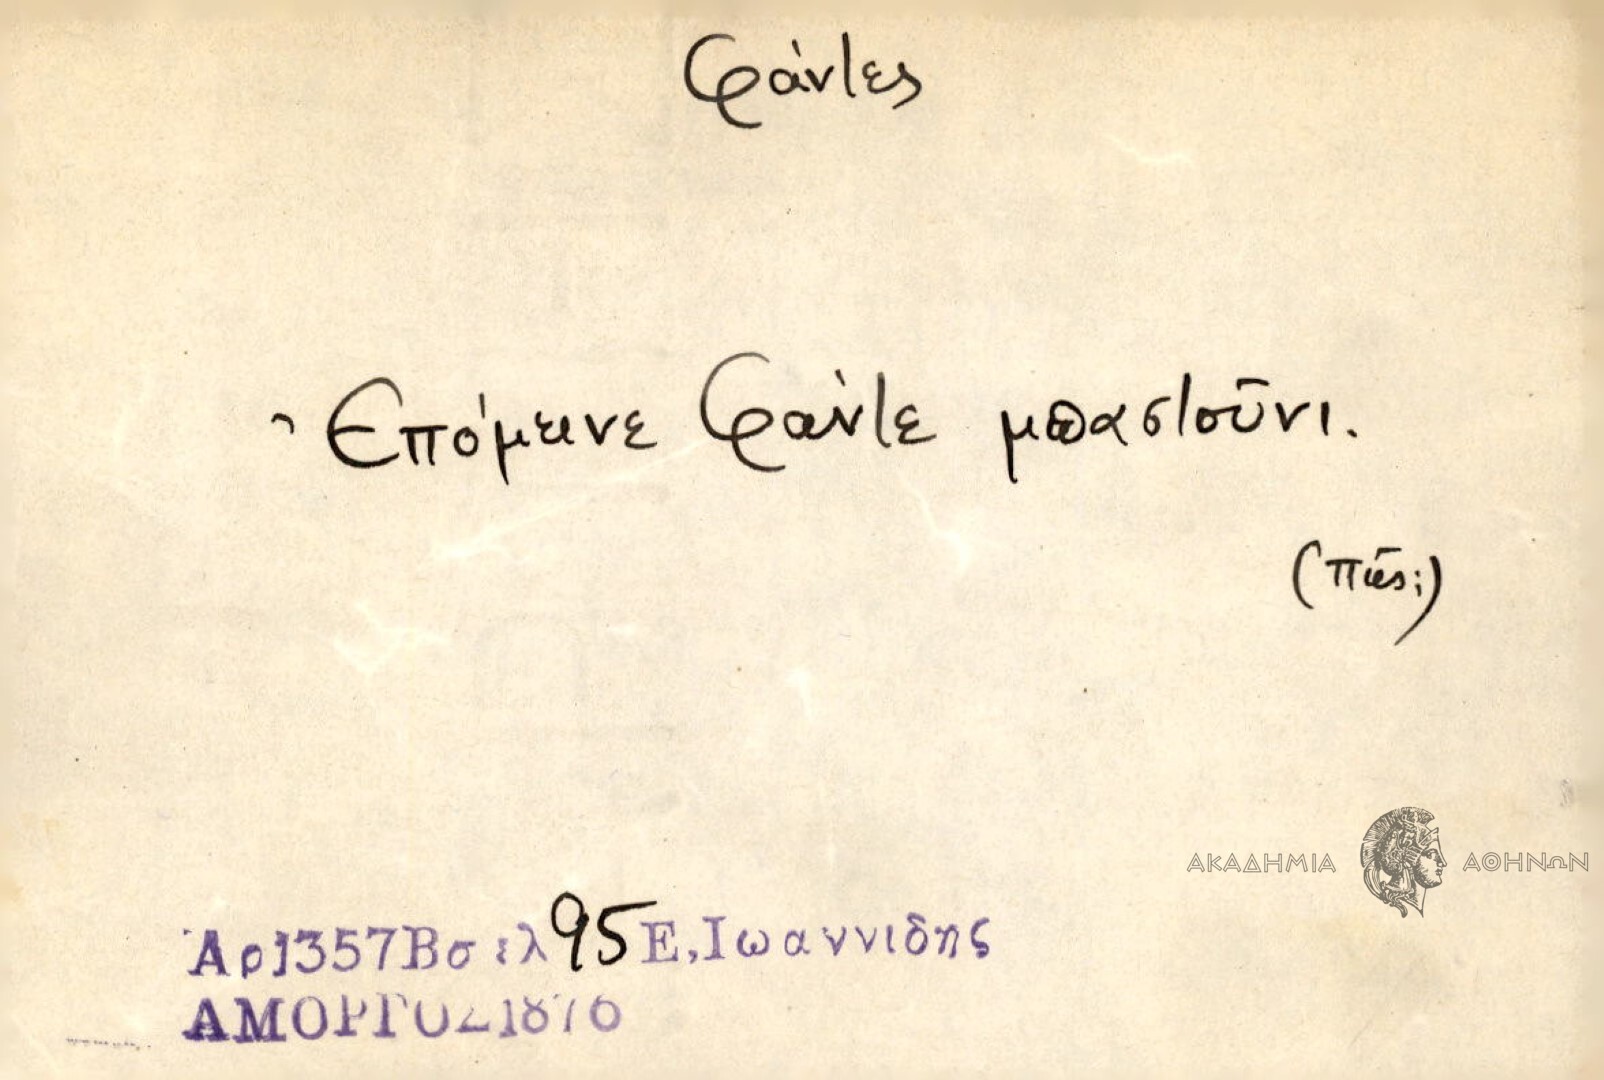 Φάντες
Ἐπόμεινε Φάντε μπαστοῦνι.
(πῶς;)
ΑΚΑΔΗΜΙΑ ΑΘΗΝΩΝ
Ἀρ1357Βσελ95Ε.Ιωαννιδης
ΑΜΟΡΓΟΣ1876